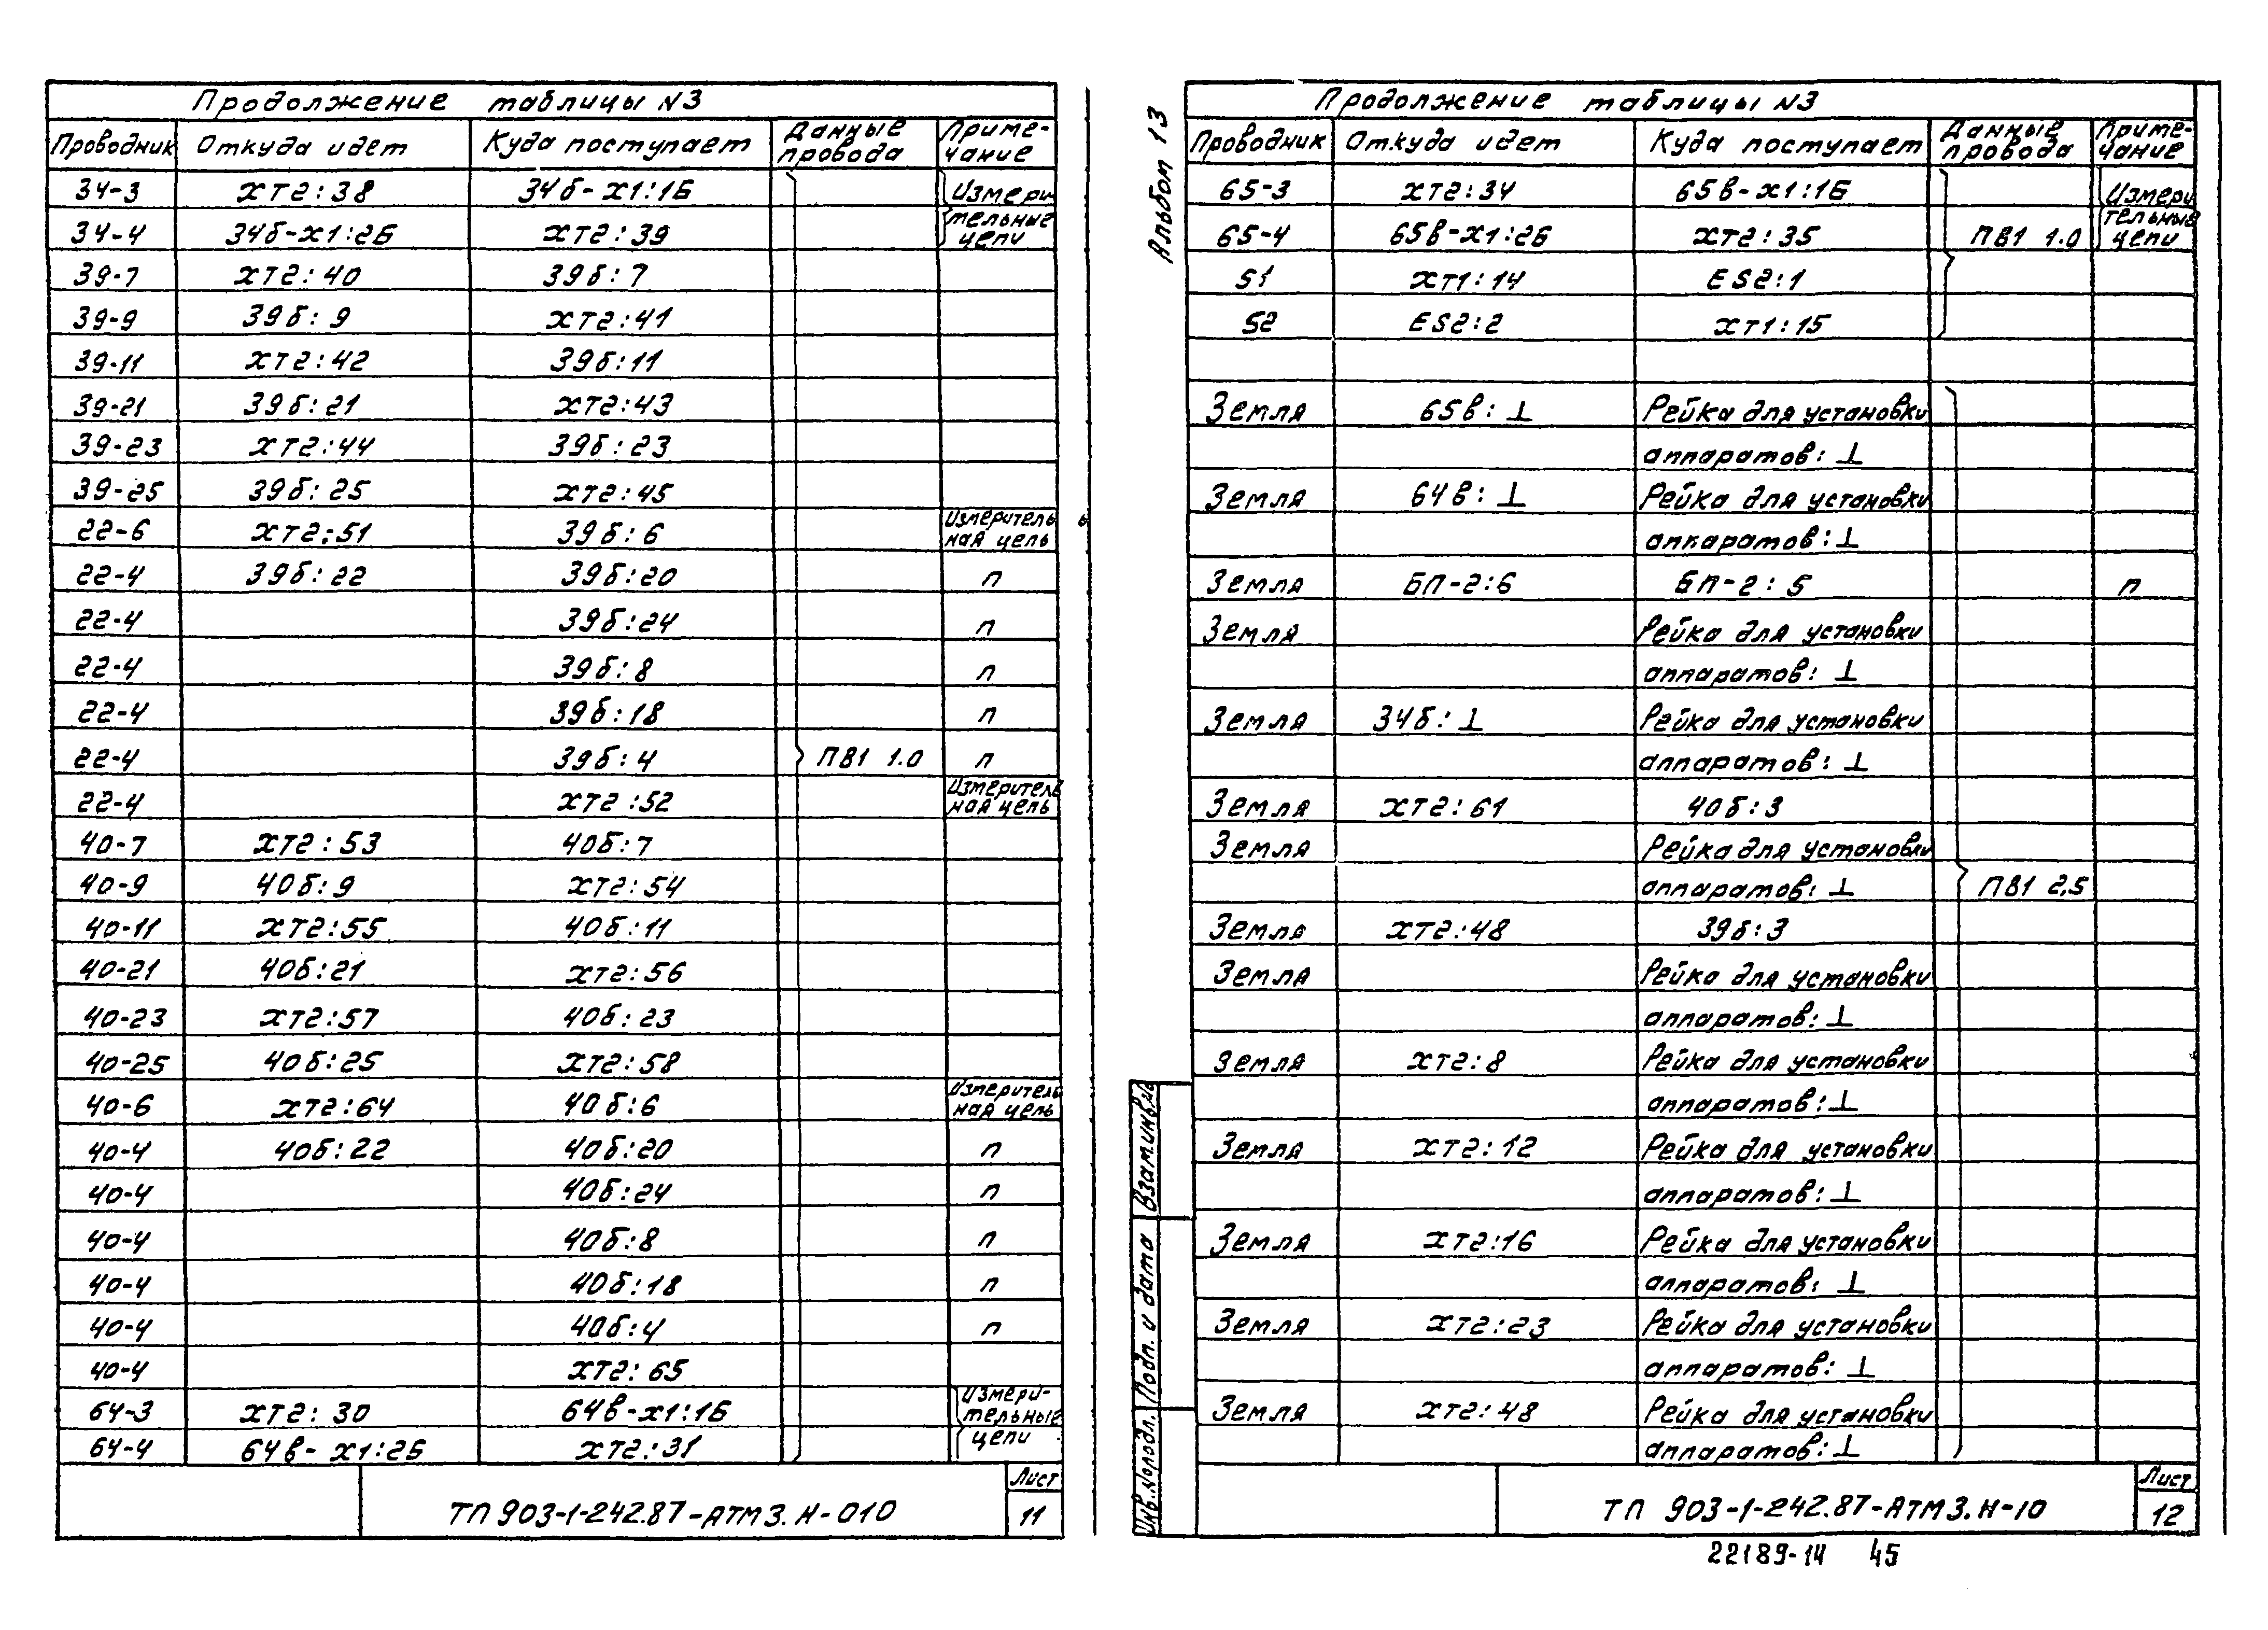 Продолжение таблицы N3
Проводник Откуда идет Куда поступает Данные провода Приме-чание
34-3 ХТ2:38 34б-Х1:1Б Измери
34-4 34б-Х1:2Б ХТ2:39 тельные цепи
39-7 ХТ2:40 39б:7
39-9 39б:9 ХТ2:41
39-11 ХТ2:42 39б:11
39-21 39б:21 ХТ2:43
39-23 ХТ2:44 39б:23
39-25 39б:25 ХТ2:45
22-6 ХТ2:51 39б:6 Измеритель ная цепь
22-4 39б:22 39б:20 п
22-4 39б:24 п
22-4 39б:8 п
22-4 39б:18 п
22-4 39б:4 ПВ1 1.0 п
22-4 ХТ2:52 Измеритель ная цепь
40-7 ХТ2:53 40б:7
40-9 40б:9 ХТ2:54
40-11 ХТ2:55 40б:11
40-21 40б:21 ХТ2:56
40-23 ХТ2:57 40б:23
40-25 40б:25 ХТ2:58
40-6 ХТ2:64 40б:6 Измеритель ная цепь
40-4 40б:22 40б:20 п
40-4 40б:24 п
40-4 40б:8 п
40-4 40б:18 п
40-4 40б:4 п
40-4 ХТ2:65
64-3 ХТ2:30 64в-Х1:1Б Измери-тельные
64-4 64в-Х1:2Б ХТ2:31 цепи
ТП 903-1-242.87-АТМ3.Н-010
Лист
11
Альбом 13
Продолжение таблицы N3
Проводник Откуда идет Куда поступает Данные провода Приме-чание
65-3 ХТ2:34 65в-Х1:1Б Измери
65-4 65в-Х1:2Б ХТ2:35 ПВ1 1.0 тельные цепи
S1 ХТ1:14 ES2:1
S2 ES2:2 ХТ1:15
Земля 65в:⊥ Рейка для установки
аппаратов:⊥
Земля 64в:⊥ Рейка для установки
аппаратов:⊥
Земля БП-2:6 БП-2:5 п
Земля Рейка для установки
аппаратов:⊥
Земля 34б:⊥ Рейка для установки
аппаратов:⊥
Земля ХТ2:61 40б:3
Земля Рейка для установки
аппаратов:⊥ ПВ1 2,5
Земля ХТ2:48 39б:3
Земля Рейка для установки
аппаратов:⊥
Земля ХТ2:8 Рейка для установки
аппаратов:⊥
Земля ХТ2:12 Рейка для установки
аппаратов:⊥
Земля ХТ2:16 Рейка для установки
аппаратов:⊥
Земля ХТ2:23 Рейка для установки
аппаратов:⊥
Земля ХТ2:48 Рейка для установки
аппаратов:⊥
Взам.инв.№
Подп. и дата
Инв.№подл.
ТП 903-1-242.87-АТМ3.Н-10
Лист
12
22189-14 45